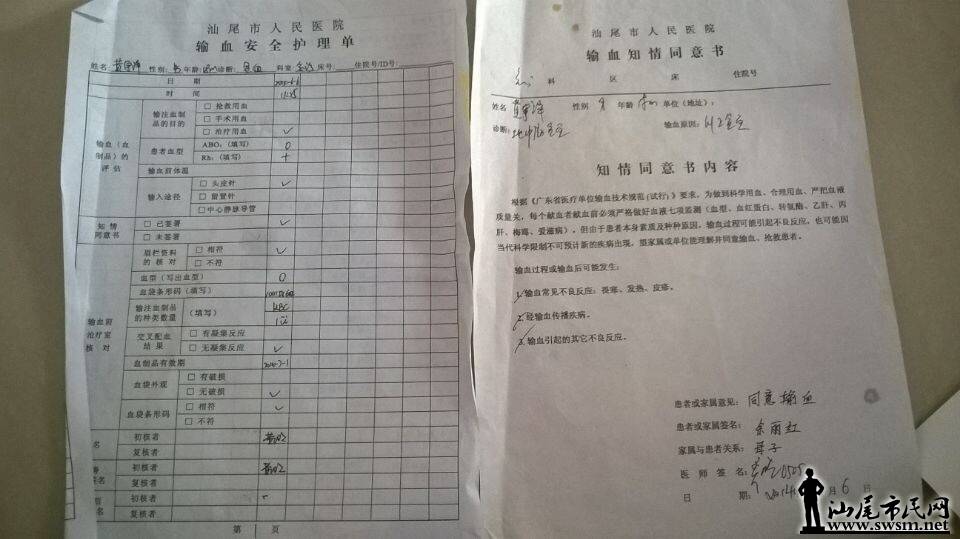 汕尾市人民医院
输血安全护理单
姓名: 性别: 男 年龄: 诊断: 贫血 科室: 床号: 住院号/ID号:
日期
时间
输血(血制品)的评估
输注血制品的目的
□ 抢救用血
□ 手术用血
□ 治疗用血 ✓
患者血型
ABO:(填写) O
Rh:(填写) +
输血前体温
输入途径
□ 头皮针 ✓
□ 留置针
□ 中心静脉导管
知情同意书
□ 已签署 ✓
□ 未签署
输血前治疗室核对
眉栏资料的核对
□ 相符 ✓
□ 不符
血型(写出血型) O
血袋条形码(填写)
输注血制品的种类数量 (填写)
交叉配血结果
□ 有凝集反应
□ 无凝集反应 ✓
血制品有效期
血袋外观
□ 有破损
□ 无破损 ✓
血袋条形码
□ 相符 ✓
□ 不符
名
初核者
复核者
初核者
复核者
初核者
名
复核者
第 1 页
汕尾市人民医院
输血知情同意书
科 区 床 住院号
姓名 性别 男 年龄 单位(地址):
诊断: 地中海贫血 输血原因: 纠正贫血
知情同意书内容
根据《广东省医疗单位输血技术规范(试行)》要求,为做到科学用血、合理用血、严把血液
质量关,每个献血者献血前必须严格做好血液七项监测(血型、血红蛋白、转氨酶、乙肝、丙
肝、梅毒、爱滋病)。但由于患者本身素质及种种原因,输血过程可能引起不良反应,也可能因
当代科学限制不可预计新的疾病出现,望家属或单位能理解并同意输血、抢救患者。
输血过程或输血后可能发生:
1.输血常见不良反应:畏寒、发热、皮疹。
2.经输血传播疾病。
3.输血引起的其它不良反应。
患者或家属意见: 同意输血
患者或家属签名: 余丽红
家属与患者关系: 母子
医师签名:
日期: 月 6 日
汕尾市民网
www.swsm.net